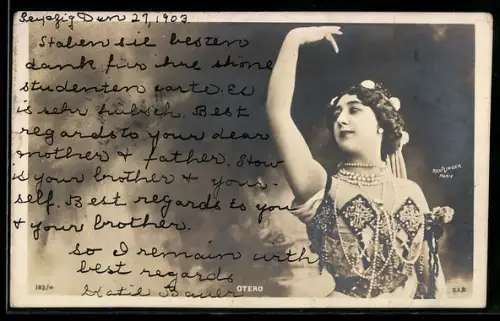 Leipzig Dun 27, 1903.
Haben sie besten
dank für ihre shöne
studenten carte. Es
is sehr hübsch. Best
regards to your dear
mother & father. How
is your brother & your-
self. Best regards to you
& your brother.
so I remain with
best regards
Katie Bauer
REUTLINGER
PARIS
183/6
OTERO
S.I.P.